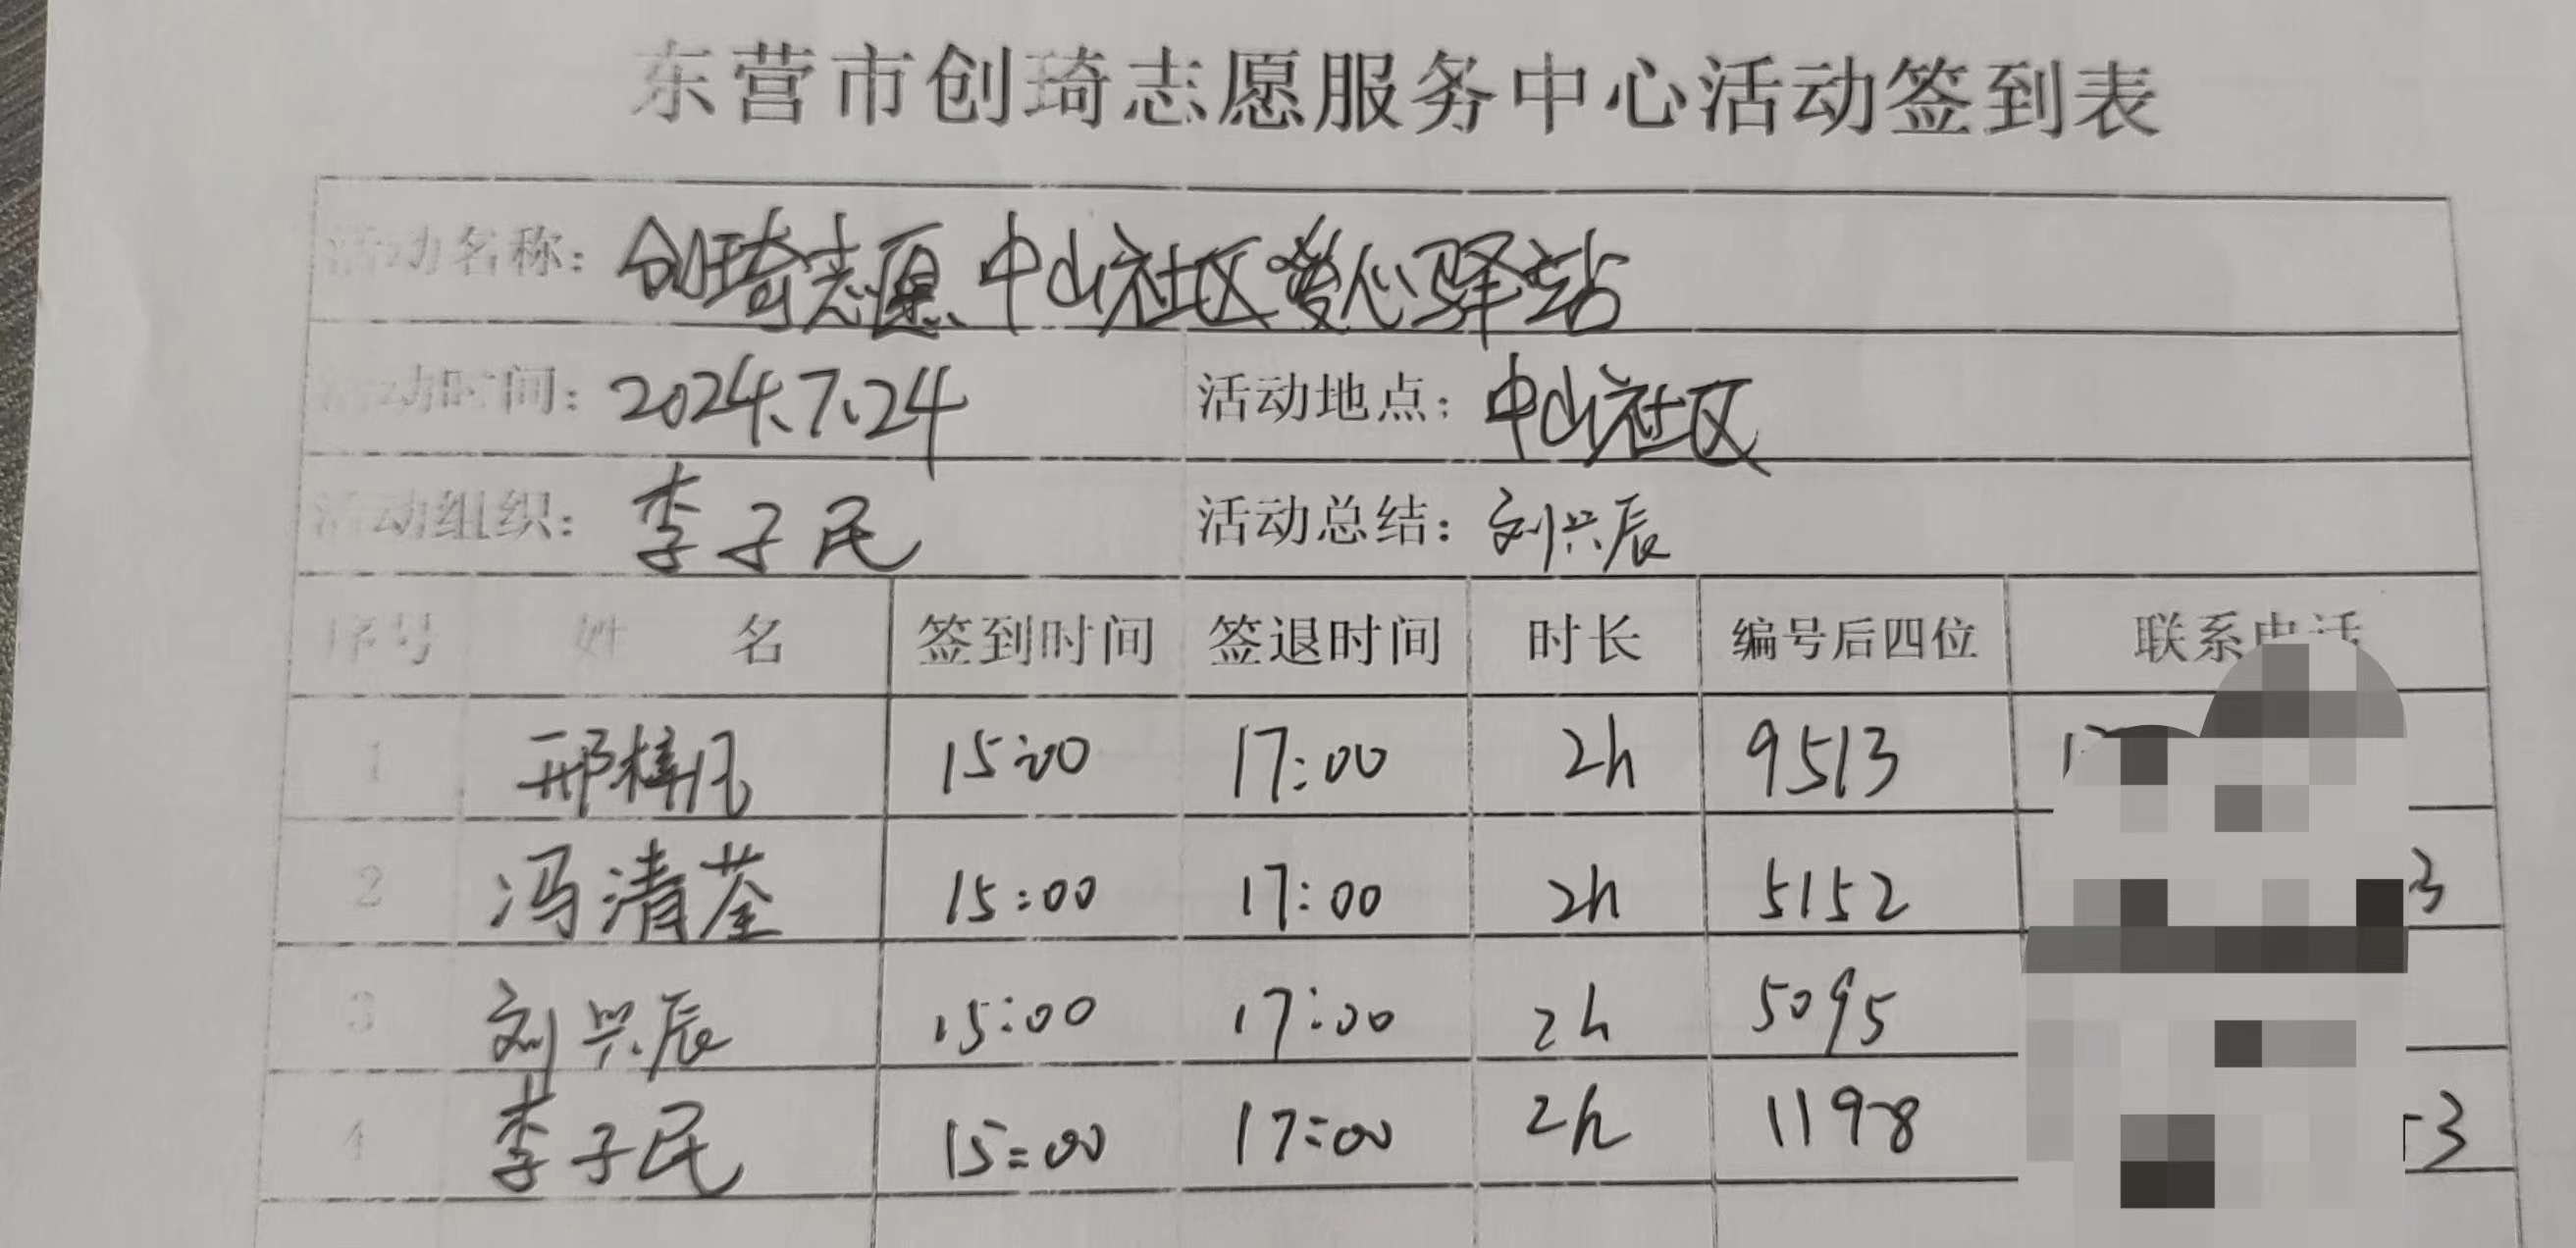 东营市创琦志愿服务中心活动签到表
活动名称：创琦志愿、中山社区爱心驿站
活动时间：2024.7.24 活动地点：中山社区
活动组织：李子民 活动总结：刘兴辰
序号 姓名 签到时间 签退时间 时长 编号后四位 联系电话
1 邢梓凡 15:00 17:00 2h 9513
2 冯清荃 15:00 17:00 2h 5152 3
3 刘兴辰 15:00 17:00 2h 5095
4 李子民 15:00 17:00 2h 1198 3